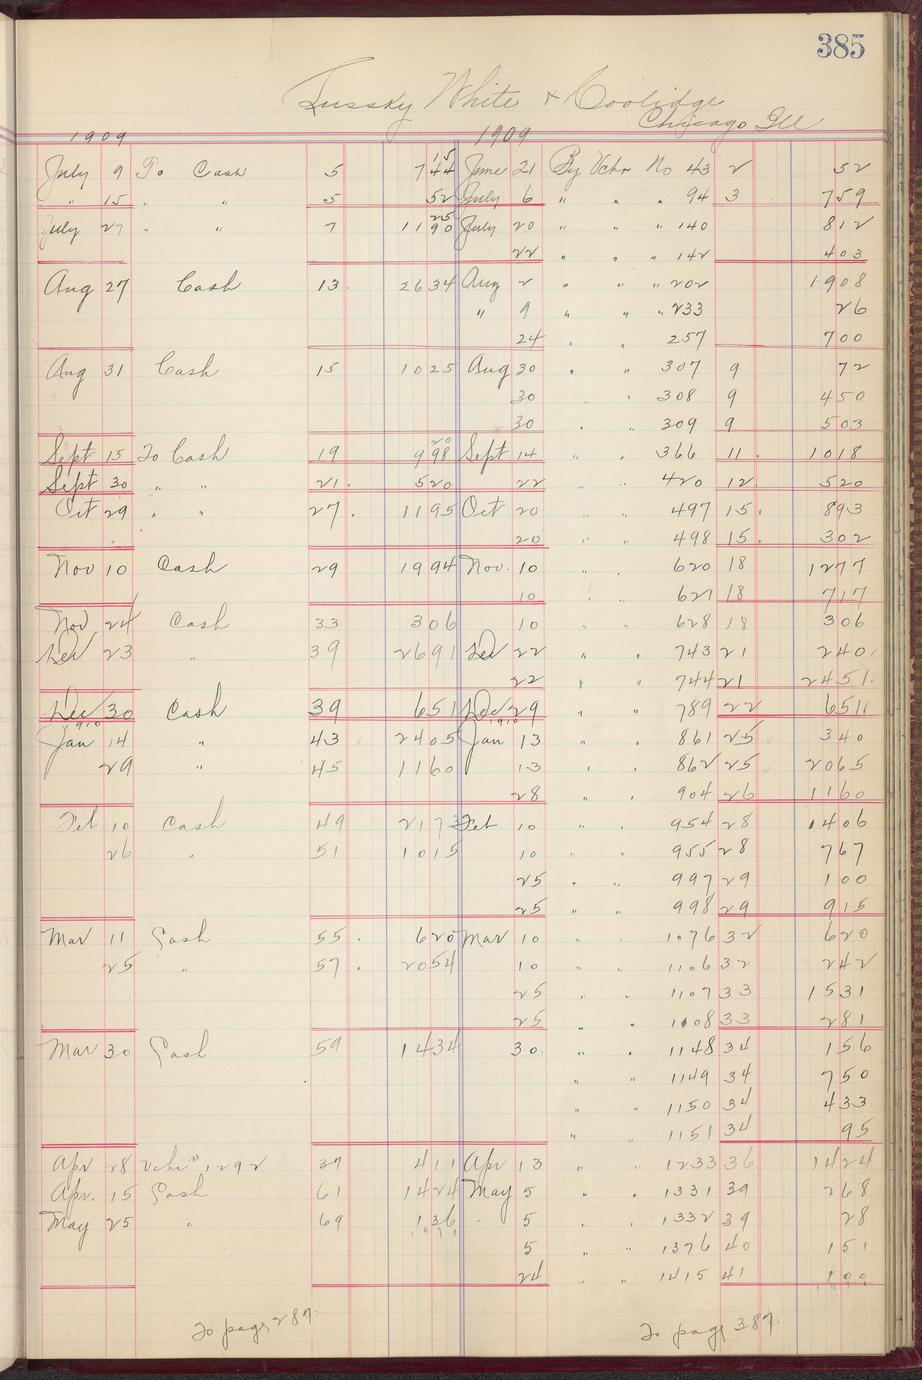 385
White & Coolidge
Chicago Ill
1909 1909
July 9 To Cash 5 7 44 15 June 21 By Vchr No 43 2 52
" 15 " " 5 52 July 6 " " " 94 3 7 59
July 27 " " 7 11 90 25 July 20 " " " 140 8 12
22 " " " 142 4 03
Aug 27 Cash 13 26 34 Aug 2 " " " 202 19 08
" 9 " " " 233 26
24 " " 257 7 00
Aug 31 Cash 15 10 25 Aug 30 " " 307 9 72
30 " " 308 9 4 50
30 " " 309 9 5 03
Sept 15 To Cash 19 9 98 20 Sept 14 " " 366 11 10 18
Sept 30 " " 21 5 20 22 " " 420 12 5 20
Oct 29 " " 27 11 95 Oct 20 " " 497 15 8 93
20 " " 498 15 3 02
Nov 10 Cash 29 19 94 Nov. 10 " " 620 18 12 77
10 " " 627 18 7 17
Nov 24 Cash 33 3 06 10 " " 628 18 3 06
Dec 23 " 39 26 91 Dec 22 " " 743 21 2 40
22 " " 744 21 24 51
Dec 30 Cash 39 6 51 Dec 29 " " 789 22 6 51
1910 1910
Jan 14 " 43 24 05 Jan 13 " " 861 25 3 40
29 " 45 11 60 13 " " 862 25 20 65
28 " " 904 26 11 60
Feb 10 Cash 49 21 73 Feb 10 " " 954 28 14 06
26 " 51 10 15 10 " " 955 28 7 67
25 " " 997 29 1 00
25 " " 998 29 9 15
Mar 11 Cash 55 6 20 Mar 10 " " 1076 32 6 20
25 " 57 20 54 10 " " 1106 32 2 42
25 " " 1107 33 15 31
25 " " 1108 33 2 81
Mar 30 Cash 59 14 34 30 " " 1148 34 1 56
" " 1149 34 7 50
" " 1150 34 4 33
" " 1151 34 95
Apr 28 Vchr 1292 37 4 11 Apr 13 " " 1233 36 14 24
Apr. 15 Cash 61 14 24 May 5 " " 1331 39 2 68
May 25 " 69 1 36 5 " " 1332 39 28
5 " " 1376 40 1 51
24 " " 1415 41 1 00
To page 287 To page 387